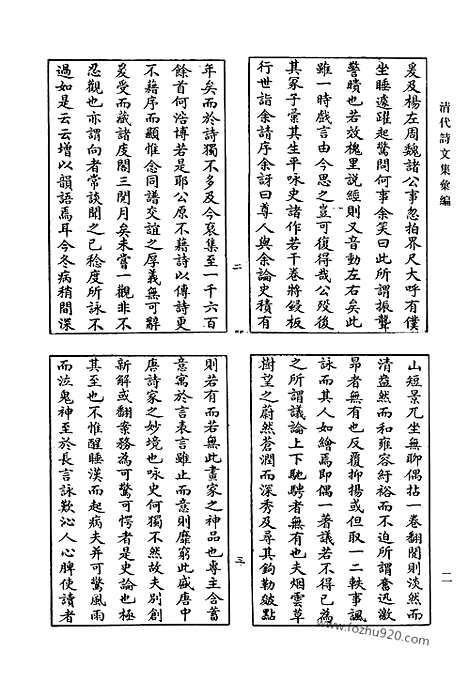 清代詩文集彙編
一一
爰及楊左周魏諸公事忽拍界尺大呼有僕
坐睡遽躍起驚問何事余笑曰此所謂振聾
警聵也若效槐里説經則又音動左右矣此
雖一時戲言由今思之豈可復得哉公歿後
其冢子彙其生平咏史諸作若干卷將鋟板
行世詣余請序余訝曰尊人與余論史積有
二
年矣而於詩獨不多及今裒集至一千六百
餘首何浩博若是耶公原不藉詩以傳詩更
不藉序而顯惟念同譜交誼之厚義無可辭
爰受而藏諸庋閣三閲月矣未嘗一觀非不
忍觀也亦謂向者常談聞之已稔度所詠不
過如是云云增以韻語焉耳今冬病稍間深
山短景兀坐無聊偶拈一卷翻閲則淡然而
清盎然而和雍容紆裕而不迫所謂奮迅激
昂者無有也反覆抑揚或但取一二軼事諷
詠而其人如繪焉即偶一著議若不得已為
之所謂議論上下馳騁者無有也夫烟雲草
樹望之蔚然蒼潤而深秀及尋其鉤勒皴點
三
則若有而若無此畫家之神品也專主含蓄
意寓於言表言雖止而意則靡窮此盛唐中
唐詩家之妙境也咏史何獨不然故夫別創
新解或翻案務為可驚可愕者是史論也極
其至也不惟醒睡漢而起病夫并可驚風雨
而泣鬼神至於長言詠歎沁人心脾使讀者
www.fozhu920.com